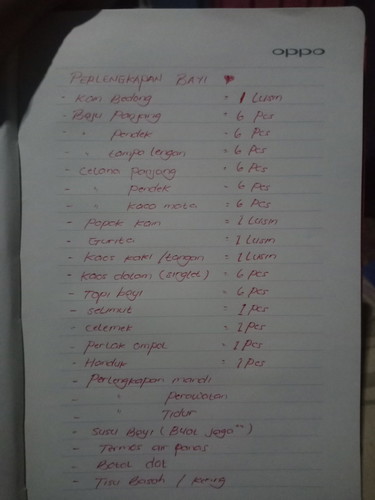 oppo
PERLENGKAPAN BAYI
- Kain Bedong = 1 Lusin
- Baju Panjang = 6 Pcs
- " Pendek = 6 Pcs
- " tanpa lengan = 6 Pcs
- Celana Panjang = 6 Pcs
- " Pendek = 6 Pcs
- " Kaca mata = 6 Pcs
- Popok Kain = 1 Lusin
- Gurita = 1 Lusin
- Kaos kaki /tangan = 1 Lusin
- Kaos dalam (singlet) = 6 Pcs
- Topi bayi = 6 Pcs
- Selimut = 1 Pcs
- Celemek = 1 Pcs
- Perlak ompol = 1 Pcs
- Handuk = 1 Pcs
- Perlengkapan mandi
- " Perawatan
- " Tidur
- Susu Bayi (Buat Jaga")
- Termos air panas
- Botol dot
- Tisu Basah / kering